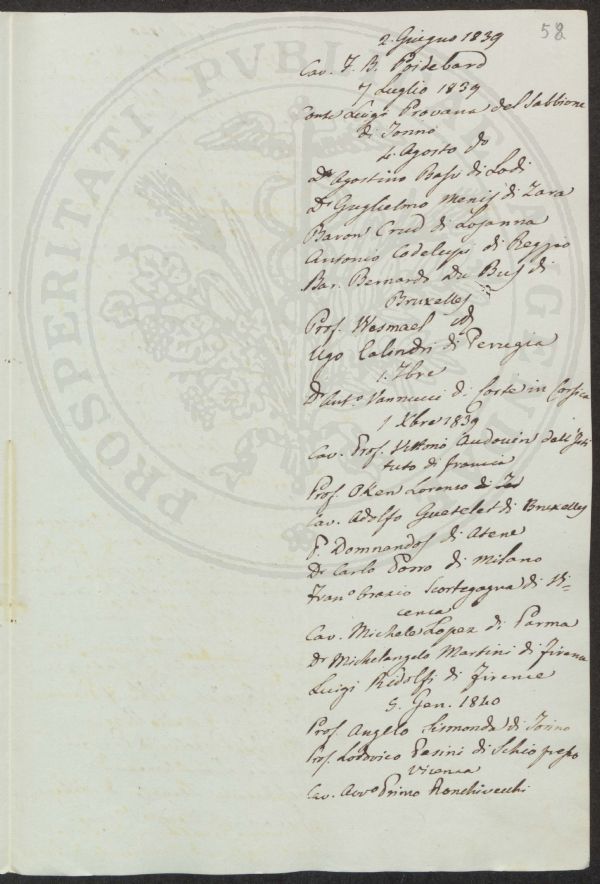 58
2. Giugno 1839
Cav. F. B. Poidebard
7 Luglio 1839
Conte Luigi Provana del Sabbione
di Torino
4. Agosto do
Dr Agostino Bassi di Lodi
Dr Guglielmo Menis di Zara
Baron Crud di Losanna
Antonio Codelupi di Reggio
Bar. Bernardo Du Bus di
Bruxelles
Prof. Wesmael id
Ugo Calindri di Perugia
1. 7bre
Dr Anto Vannucci di Corte in Corsica
1 Xbre 1839
Cav. Prof. Vittorio Audouin dall'Isti
tuto di Francia
Prof. Oken Lorenzo di
Cav. Adolfo Quetelet di Bruxelles
F. Domnandos di Atene
Dr Carlo Porro di Milano
Frano Orazio Scortegagna di Vi=
cenza
Cav. Michele Lopez di Parma
Dr Michelangelo Martini di Firenze
Luigi Ridolfi di Firenze
5. Gen. 1840
Prof. Angelo Sismonda di Torino
Prof. Lodovico Pasini di Schio presso
Vicenza
Cav. Avvo Primo Ronchivecchi
PROSPERITATI PVBLICAE AVGENDAE